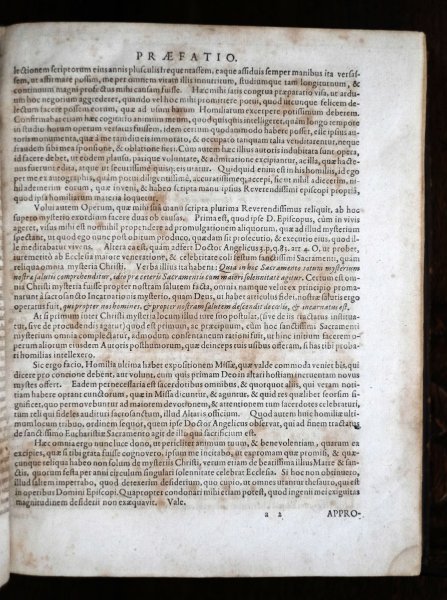 PRÆFATIO.
lectionem scriptorum eius annis plusculis frequentassem, eaque assiduis semper manibus ita versassem, ut
affirmare possim, me per omnem vitam illis innutritum, studiumque tam longiturnum, &
continuum magni profectus mihi causam fuisse. Hæc mihi satis congrua præparatio visa, ut arduum
hoc negorium aggrederer, quando vel hoc mihi promittere potui, quod utcunque felicem delectum
facere possem eorum, quæ ad usum harum Homiliarum excerpere potissimum deberem.
Confirmabat etiam hæc cogitatio animum meum, quod quisquis intelliget, quam longo tempore
in studio horum operum versatus fuissem, idem certum quodammodo habere posset, esse ipsius autoris
monumenta, quæ à me tam diu etis in notato, & occupato tanquam talia venditarentur, neque
fraudem sibi mea isponsione, & oblatione fieri. Cum autem hac illius autoris indubitata sunt opera,
id facere debet, ut eodem plausu, parique voluntate, & admiratione excipiantur, ac illa, quæ hactenus
fuerunt edita, atque ut securissime quisque iis utatur. Quidquid enim est in his homiliis, id ego
per me ex autographis, quàm potui diligentissime, accuratissimeque accepi, sic ut nihil adiecerim, nihil
ademerim eorum, quæ inveni, & habeo scripta manu ipsius Reverendissimi episcopi proprii,
quod ipsa homiliarum materia loquetur.
Volui autem Operum, quæ mihi sua manu scripta plurima Reverendissimus reliquit, ab hoc
supero mysterio exordium facere duas ob causas. Prima est, quod ipse D. Episcopus, cùm in vivis
ageret, visus mihi est nonnihil propendere ad promulgationem aliorum, quæ ad illud mysterium
spectant, ut quod ego nunc post obitum produco, quædam sit prosecutio, & executio eius, quod ille
meditabatur vivens. Altera ea est, quam adfert Doctor Angelicus 3. p. q. 83. art. 4. O. ut probet,
iure merito ab Ecclesia maiore veneratione, & celebritate coli festum sanctissimi Sacramenti, quàm
reliqua omnia mysteria Christi. Verba illius ita habent: Quia in hoc Sacramento totum mysterium
nostræ salutis comprehenditur, ideo præ ceteris Sacramentis cum maiori solennitate agitur. Certum est omnia
Christi mysteria fuisse propter nostram salutem facta, omnia namque velut ex principio promanarunt
à sacrosancto Incarnationis mysterio, quam Deus, ut habet articulus fidei nostræ salutis ergo
operatus fuit, qui propter nos homines, & propter nostram salutem descendit de cœlis, & incarnatus est.
At si primum inter Christi mysteria locum illud iure suo postulat, (sive de iis tractatus instituatur,
sive de procudendis agatur) quod est primum, ac præcipuum, cùm hoc sanctissimi Sacramenti
mysterium omnia complectatur, admodum consentaneum rationi fuit, ut hinc initium facerem omnium
aliorum eiusdem Autoris possthumorum, quæ deinceps tuis usibus offeram, si has tibi probari
homilias intellexero.
Sic ergo facio, Homilia ultima habet expositionem Missæ, quæ valde commoda veniet ubi, qui
dicere pro concione debent, aut volunt, cum quis primam Deo in altari hostiam incruentam novus
mystes offert. Eadem pernecessaria est sacerdotibus omnibus, & quorquot aliis, qui veram notitiam
habere optant eorum, quæ in Missa dicuntur, & aguntur, & quid res quælibet seorsim significet,
quo permovebuntur ad maiorem devotionem, & attentionem tum sacerdotes celebraturi,
tum reliqui fideles audituri sacrosanctum, illud Altaris officium. Quod autem huic homiliæ ultimum
locum tribuo, ordinem sequor, quem ipse Doctor Angelicus observat, qui ad finem tractatus
de sanctissimo Eucharistiæ Sacramento agit de illo quà sacrificium est.
Hæc omnia ergo nunc luce dono, ut periclitem animum tuum, & benevolentiam, quarum ea
excipies, quæ si tibi grata fuisse cognovero, ipsum me incitabo, ut expromam quæ promisi, & quæcunque
reliqua habeo non solum de mysteriis Christi, verùm etiam de beatissima illius Matre & sanctis,
quorum festa per anni circulum singulari solemnitate celebrat Ecclesia. Si hoc non obtinuero,
illud saltem impetrabo, quod deterrim desiderium, quo cupio, ut omnes utantur thesauro, qui est
in operibus Domini Episcopi. Quapropter condonari mihi etiam potest, quod ingenii mei exiguitas
magnitudinem desiderii non exæquavit. Vale.
a 2 APPRO-